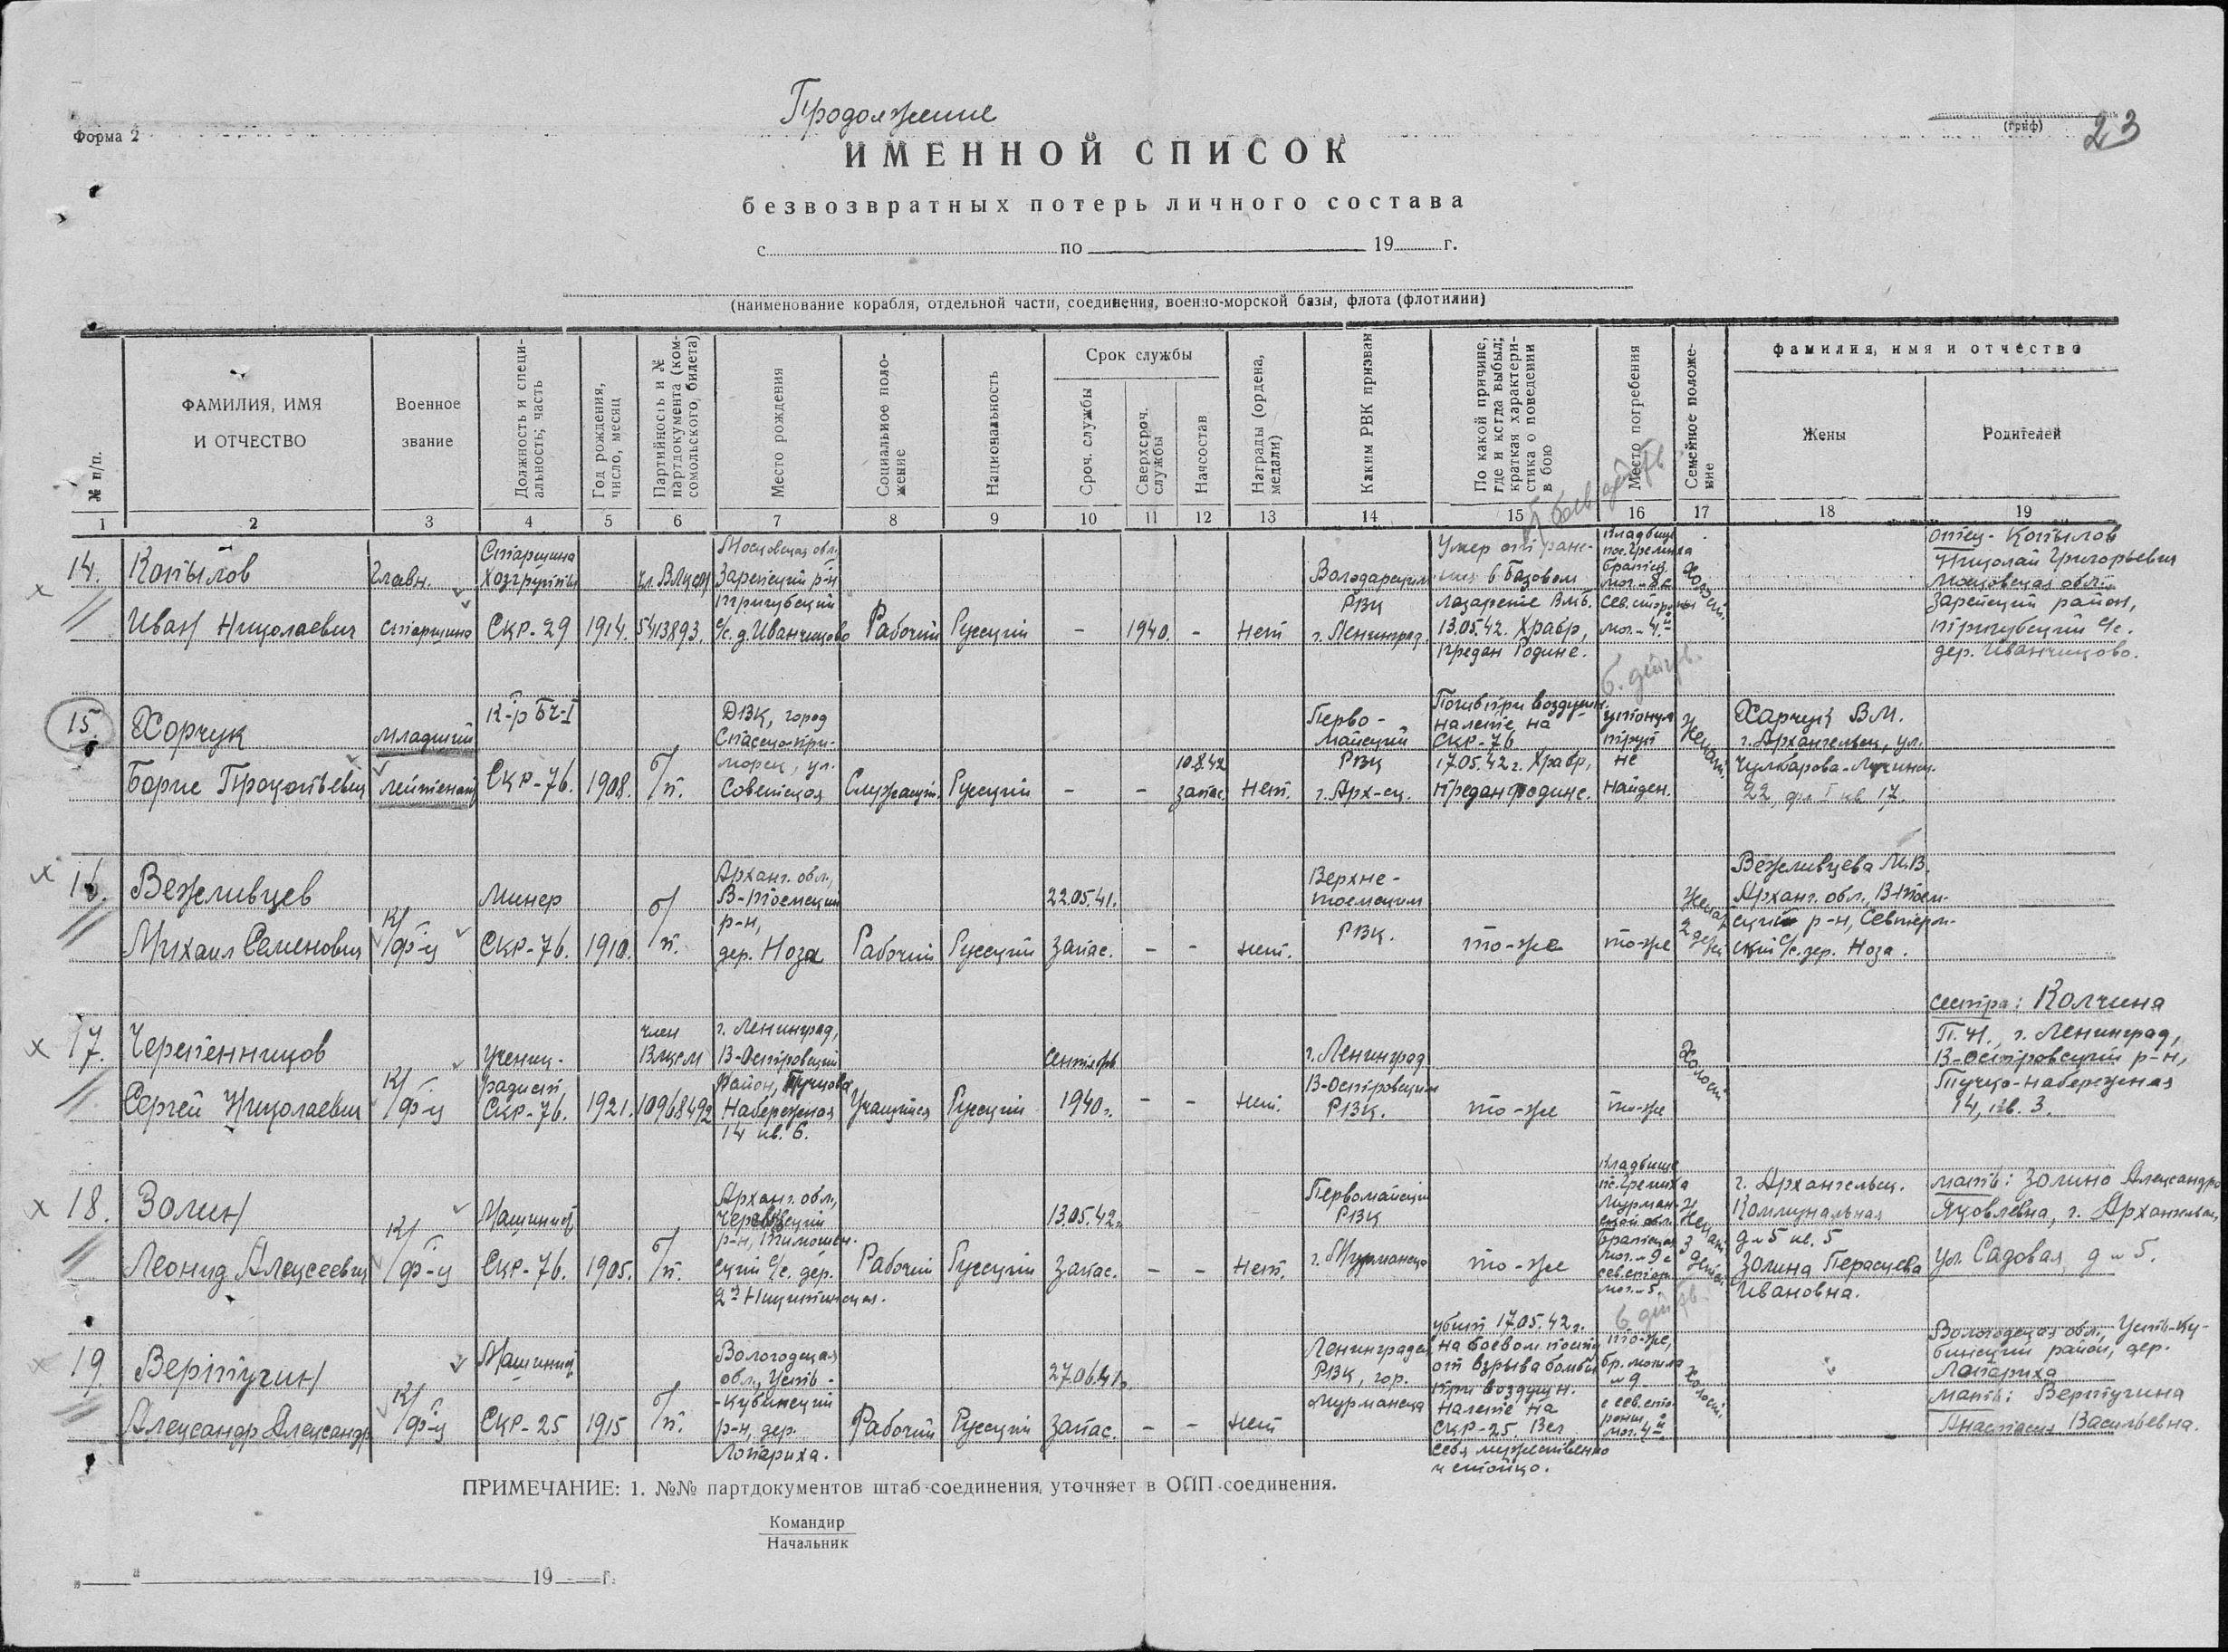 Продолжение
Форма 2
(гриф)
23
ИМЕННОЙ СПИСОК
безвозвратных потерь личного состава
с по 19 г.
(наименование корабля, отдельной части, соединения, военно-морской базы, флота (флотилии)
№ п/п.
ФАМИЛИЯ, ИМЯ
И ОТЧЕСТВО
Военное
звание
Должность и специ-
альность; часть
Год рождения,
число, месяц
Партийность и №
партдокумента (ком-
сомольского, билета)
Место рождения
Социальное поло-
жение
Национальность
Срок службы
Сроч. службы
Сверхсроч.
службы
Начсостав
Награды (ордена,
медали)
Каким РВК призван
По какой причине,
где и когда выбыл;
краткая характери-
стика о поведении
в бою
Место погребения
Семейное положе-
ние
фамилия, имя и отчество
Жены
Родителей
1 2 3 4 5 6 7 8 9 10 11 12 13 14 15 16 17 18 19
14.
Копылов
Иван Николаевич
Главн.
старшина
Старшина
Хозгруппы
СКР-29
1914.
чл. ВЛКСМ
5413893.
Московская обл.
Зарайский р-н
Пригубский
с/с. д. Иванчиково
Рабочий
Русский
-
1940.
-
нет
Володарским
РВК
г. Ленинград.
Умер от ране-
ния в Базовом
лазарете ВМБ.
13.05.42. Храбр,
предан Родине.
Кладбище
пос. Гремиха
братск.
мог. - 8 с
сев. стороны
мог. - 4й
Холост.
отец - Копылов
Николай Григорьевич
Московская обл.
Зарайский район,
Пригубский с/с.
дер. Иванчиково.
15.
Хорчук
Борис Прокопьевич
младший
лейтенант
К-р БЧ-I
СКР-76.
1908.
б/п.
ДВК, город
Спасск-При-
морск, ул.
Советская
Служащий.
Русский
-
-
10.8.42
запас
Нет.
Перво-
майский
РВК
г. Арх-ск.
Погиб при воздушн.
налете на
СКР-76
17.05.42 г. Храбр,
предан родине.
утонул
труп
не
найден.
Женат
Харчук В.М.
г. Архангельск, ул.
Чумбарова-Лучинск.
22, фл. I кв. 17.
16.
Вежливцев
Михаил Семенович
к/ф-ц
Минер
СКР-76.
1910.
б/п.
Арханг. обл.,
В-Тоемский
р-н,
дер. Ноза
Рабочий
Русский
22.05.41.
Запас.
-
-
нет.
Верхне-
тоемским
РВК.
то-же
то-же
Женат
2 детей
Вежливцева М.В.
Арханг. обл., В-Тоем-
ский р-н, Севтерм-
ский с/с. дер. Ноза.
17.
Черепенников
Сергей Николаевич
к/ф-ц
Ученик-
радист
СКР-76.
1921.
член
ВЛКСМ
10968492
г. Ленинград,
В-Островский
район, Тучкова
Набережная
14 кв. 6.
Учащийся
Русский
сентябрь
1940 г.
-
-
нет.
г. Ленинград
В-Островским
РВК.
то-же
то-же
Холост
сестра: Колчина
П.Н., г. Ленинград,
В-Островский р-н,
Тучко-набережная
14, кв. 3.
18.
Золин
Леонид Алексеевич
к/ф-ц
Машинист
СКР-76.
1905.
б/п.
Арханг. обл.,
Черевковский
р-н, Тимошен-
ский с/с. дер.
2я Никитинская.
Рабочий
Русский
13.05.42 г.
Запас.
-
-
Нет.
Первомайский
РВК
г. Мурманска
то-же
Кладбище
п. Гремиха
Мурман-
ской обл.
братская
мог. - 9 с
сев. стор.
мог. - 5.
Женат
3 детей
г. Архангельск.
Коммунальная
д. 5 кв. 5
Золина Перасцева
Ивановна.
мать: Золина Александра
Яковлевна, г. Архангельск,
ул. Садовая, д. 5.
19
Вертугин
Александр Александр.
к/ф-ц
Машинист
СКР-25
1915
б/п.
Вологодская
обл., Усть-
-Кубинский
р-н, дер.
Лопариха.
Рабочий
Русский
27.06.41 г.
Запас.
-
-
нет
Ленинградск.
РВК, гор.
Мурманска
убит 17.05.42 г.
на боевом посту
от взрыва бомбы
при воздушн.
налете на
СКР-25. Вел
себя мужественно
и стойко.
то-же,
бр. могила
№ 9
с сев. сто-
роны
мог. 4й
Холост
Вологодская обл., Усть-Ку-
бинский район, дер.
Лопариха
мать: Вертугина
Анастасия Васильевна.
ПРИМЕЧАНИЕ: 1. №№ партдокументов штаб соединения, уточняет в ОПП соединения.
Командир
Начальник
„ " 19 г.